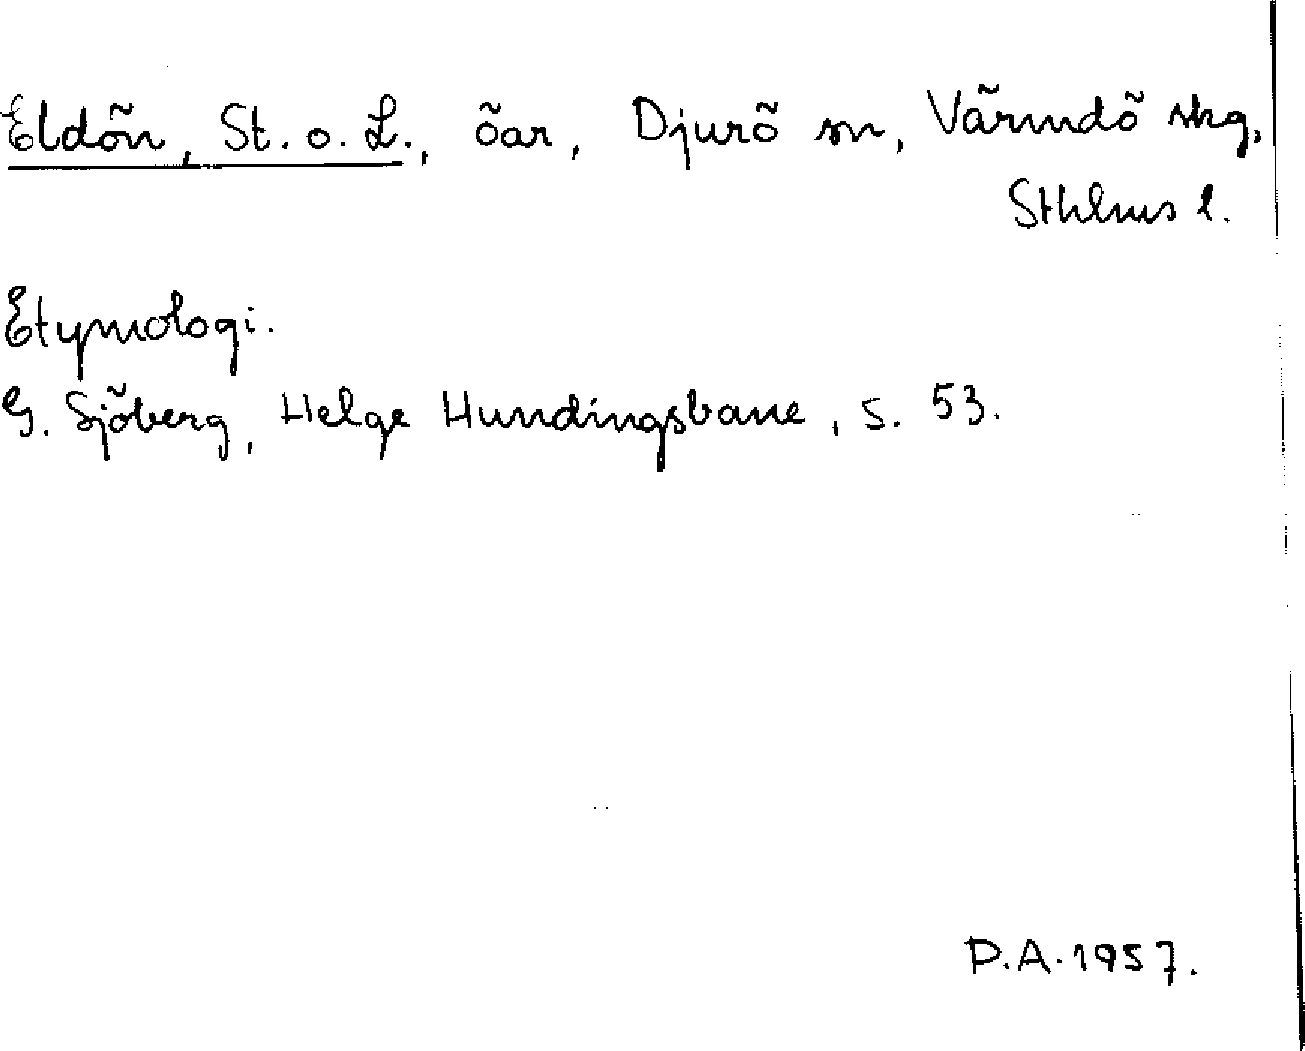 Eldön, St. o. L., öar, Djurö sn, Värmdö skg,
Sthlms l.
Etymologi.
G. Sjöberg, Helge Hundingsbane, s. 53.
P.A. 1957.